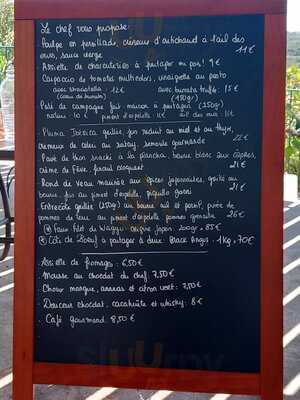 Le chef vous propose:
Poulpe en persillade, cœurs d'artichaut à l'ail des
ours, sauce vierge 11€
Assiette de charcuteries à partager ou pas! 9€
Carpaccio de tomates multicolors, vinaigrette au pesto
avec stracciatella : 12€ avec burrata : 15€
(cœur de burrata) (150gr)
Pâté de campagne fait-maison à partager (250g)
nature : 10€ piment d'espelette 11€ ail des ours 11€
Pluma Ibérica grillée, jus réduit au miel et au thym,
crémeux de céleri au satay, semoule gourmande 22€
Pavé de thon snacké à la plancha, beurre blanc aux câpres,
crème de fève, fenouil croquant 21€
Rond de veau mariné aux épices japonaises, grillé au
beurre fin au piment d'espelette, piquillo farci 21€
Entrecôte grillée (250g) au beurre ail et persil, purée de
pommes de terre au piment d'espelette pommes grenaille 26€
Faux Filet de Wagyu origine Japon 200gr = 85€
Côte de Bœuf à partager à deux Black Angus 1kg, 70€
Assiette de fromages : 6,50€
Mousse au chocolat du chef : 7,50€
Choux mangue, ananas et citron vert : 7,50€
Douceur chocolat, cacahuète et whisky : 8€
Café gourmand : 8,50€